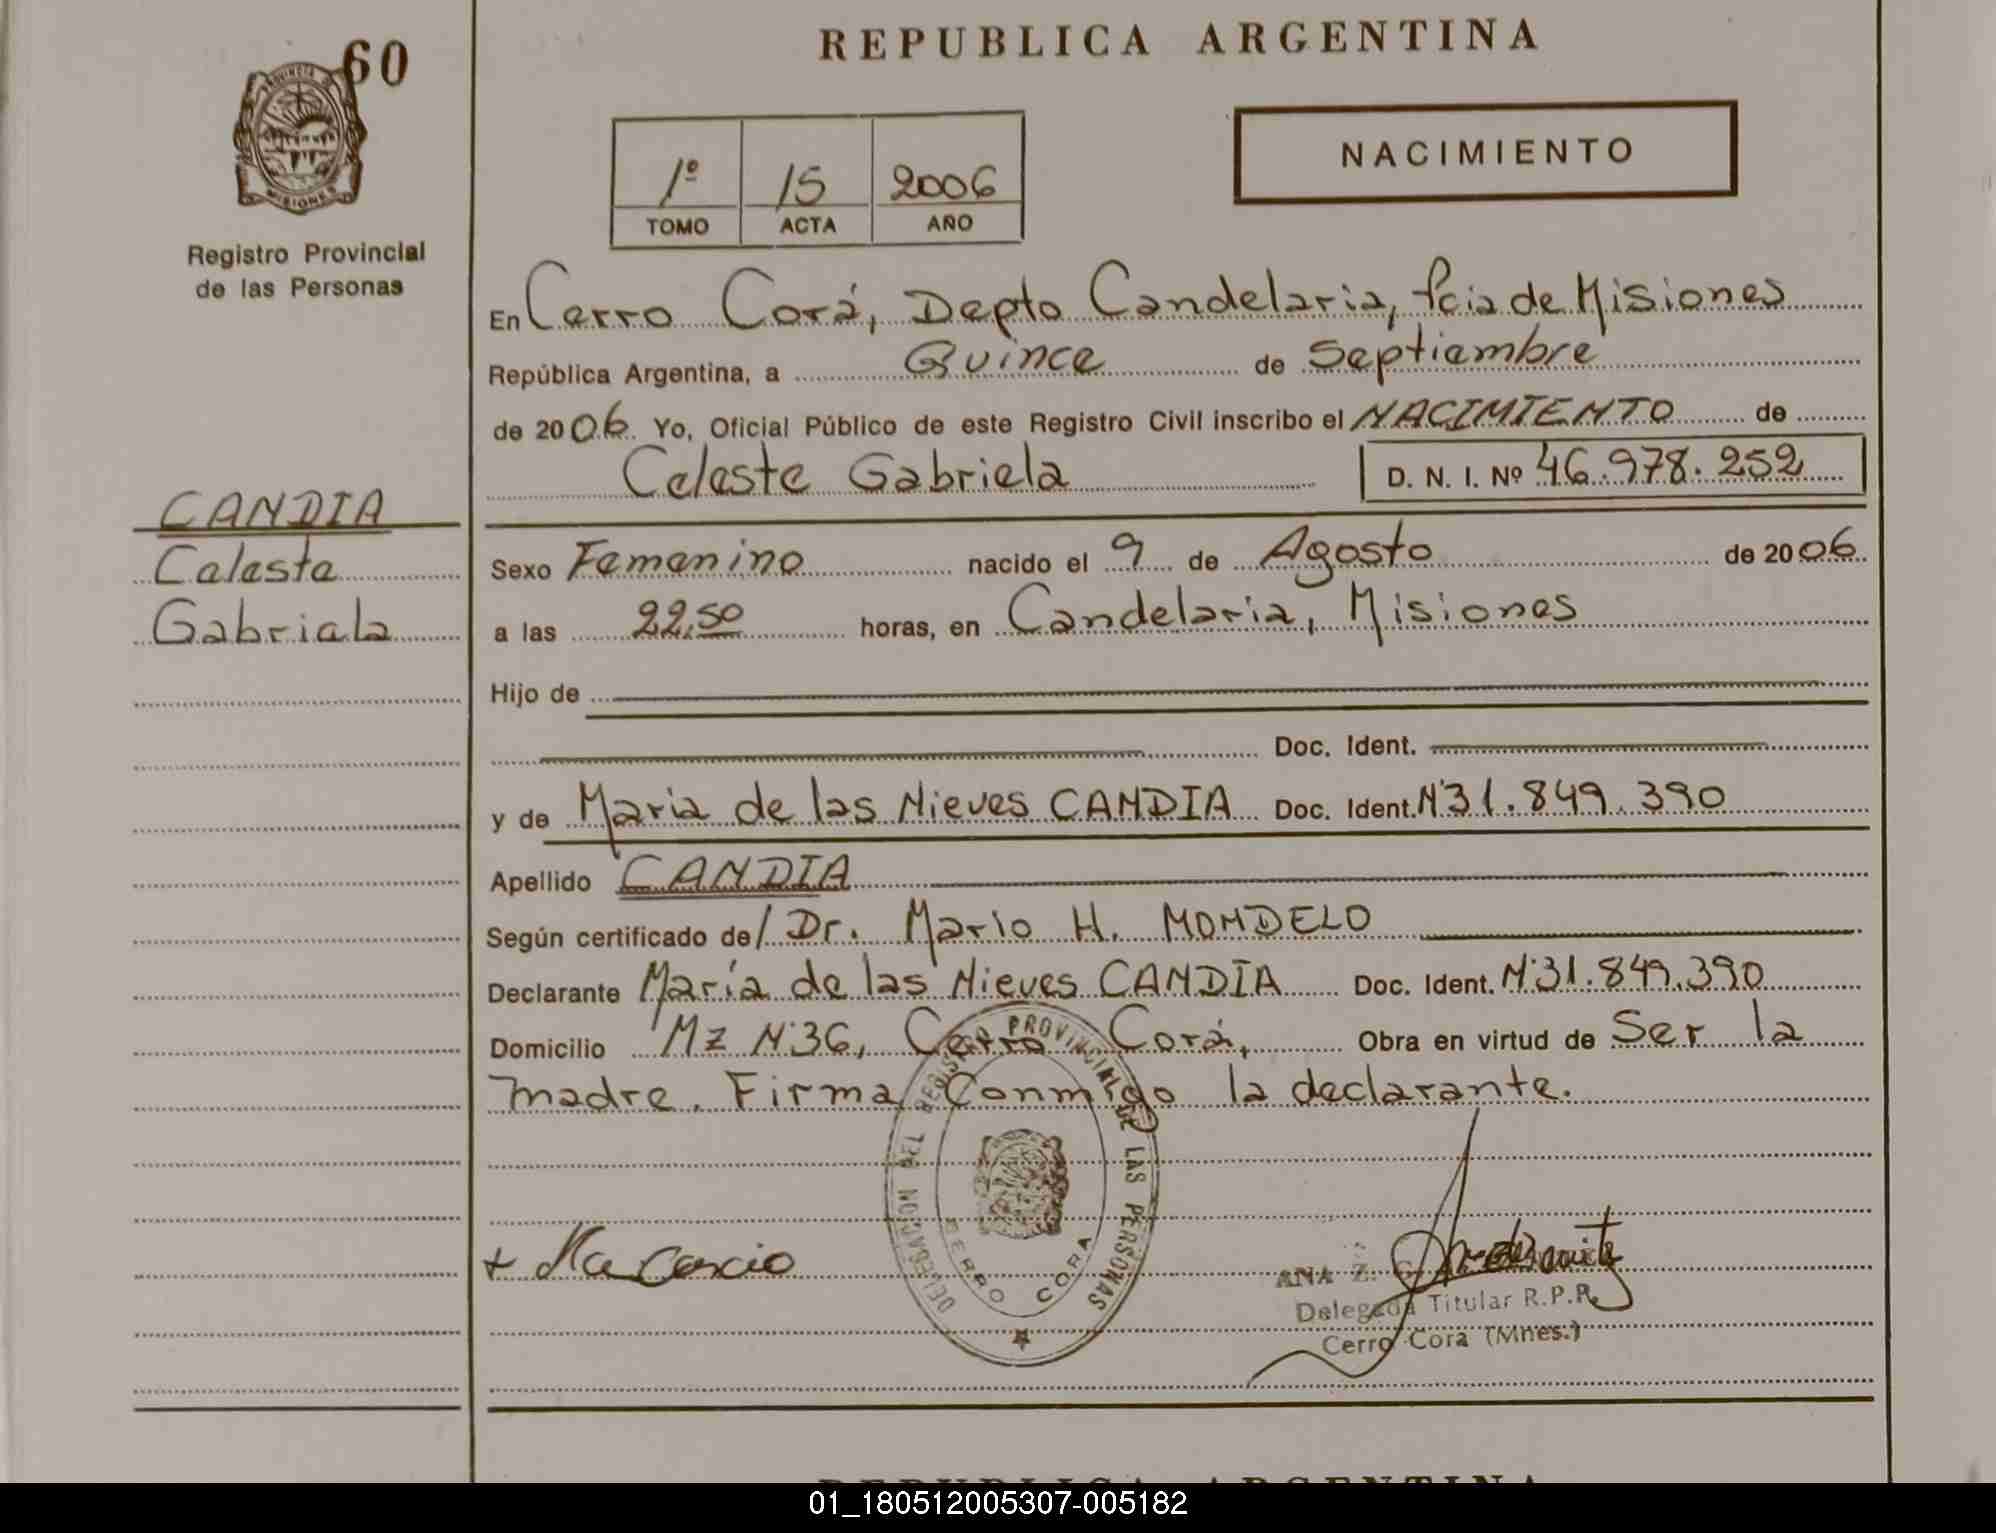 60
REPUBLICA ARGENTINA
NACIMIENTO
1º 15 2006
TOMO ACTA AÑO
PROVINCIA D
MISIONES
Registro Provincial
de las Personas
En Cerro Corá, Depto Candelaria, Pcia de Misiones
República Argentina, a Quince de Septiembre
de 2006. Yo, Oficial Público de este Registro Civil inscribo el NACIMIENTO de
Celeste Gabriela D. N. I. Nº 46.978.252
CANDIA
Celeste
Gabriela
Sexo Femenino nacido el 9 de Agosto de 2006
a las 22,50 horas, en Candelaria, Misiones
Hijo de
Doc. Ident.
y de Maria de las Nieves CANDIA Doc. Ident. Nº31.849.390
Apellido CANDIA
Según certificado de/ Dr. Mario H. MONDELO
Declarante María de las Nieves CANDIA Doc. Ident. Nº31.849.390
Domicilio Mz Nº36, Cerro Corá, Obra en virtud de Ser la
madre. Firma Conmigo la declarante.
DELEGACION DEL REGISTRO PROVINCIAL DE LAS PERSONAS
CERRO CORA
ANA Z.
Delegada Titular R.P.P.
Cerro Cora (Mnes.)
REPUBLICA ARGENTINA
01_180512005307-005182